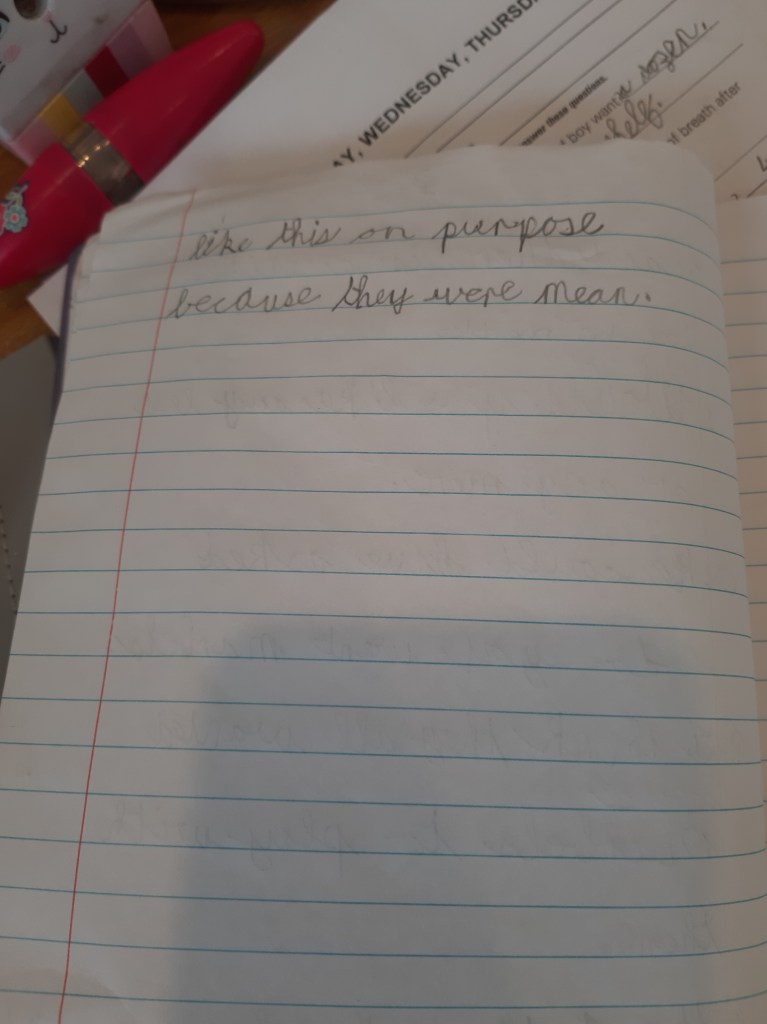 AY, WEDNESDAY, THURSD
answer these questions.
boy want
self.
of breath after
like this on purpose
because they were mean.